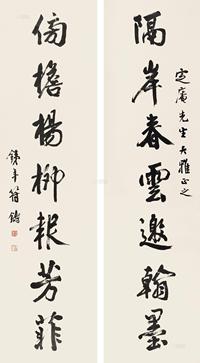 隔岸春雲邀翰墨
先生大雅正之
傍檐楊柳報芳菲
鐵年符鑄